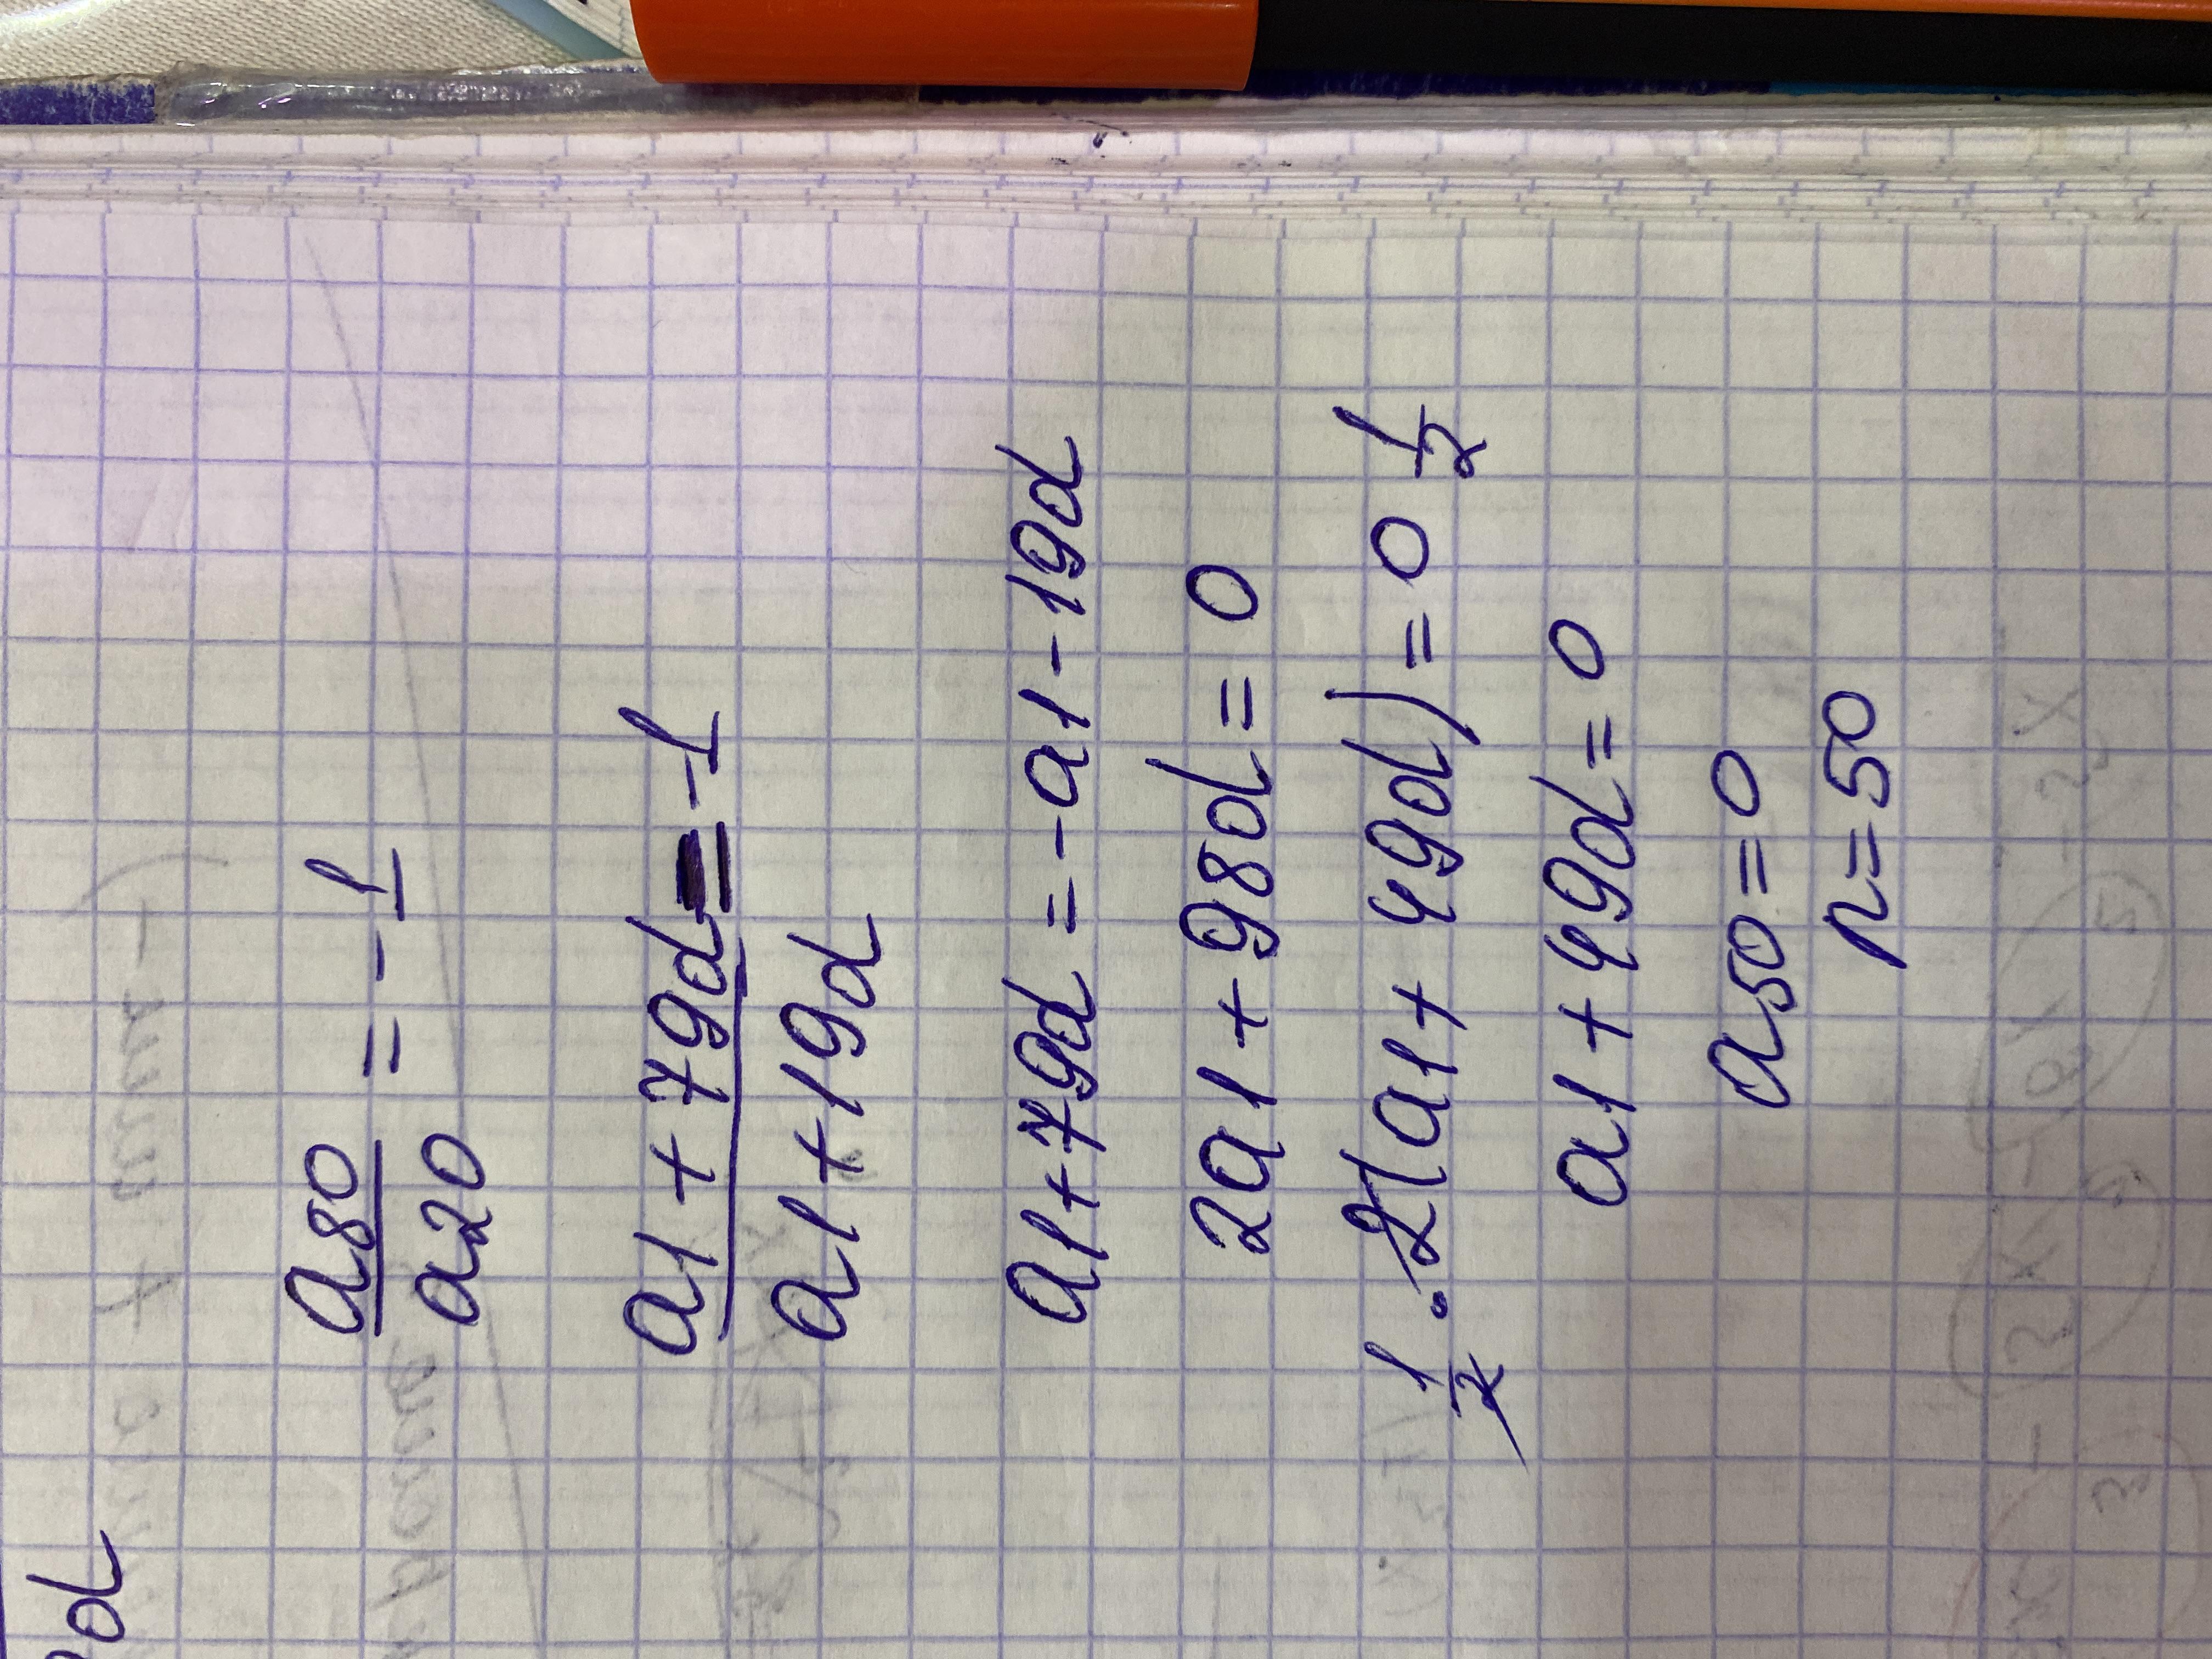 d
a80/a20 = -1
a1 + 79d/a1 + 19d = -1
a1 + 79d = -a1 - 19d
2a1 + 98d = 0
1/2 · 2(a1 + 49d) = 0 1/2
a1 + 49d = 0
a50 = 0
n = 50